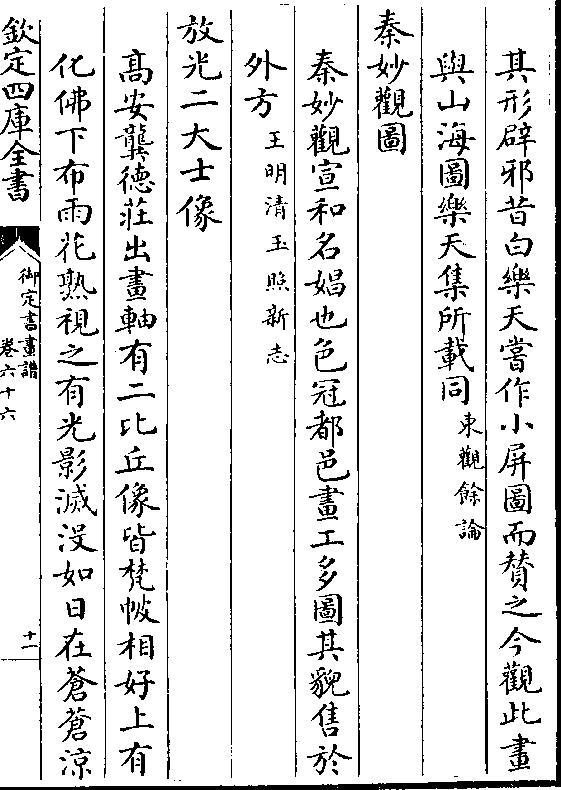 其形辟邪昔白樂天嘗作小屏圖而贊之今觀此畫
與山海圖樂天集所載同東觀餘論
秦妙觀圖
秦妙觀宣和名娼也色冠都邑畫工多圖其貌售於
外方王明清玉照新志
放光二大士像
高安龔德莊出畫軸有二比丘像皆梵帔相好上有
化佛下布雨花熟視之有光影滅沒如日在蒼蒼涼
欽定四庫全書
御定書畫譜
卷六十六
十一